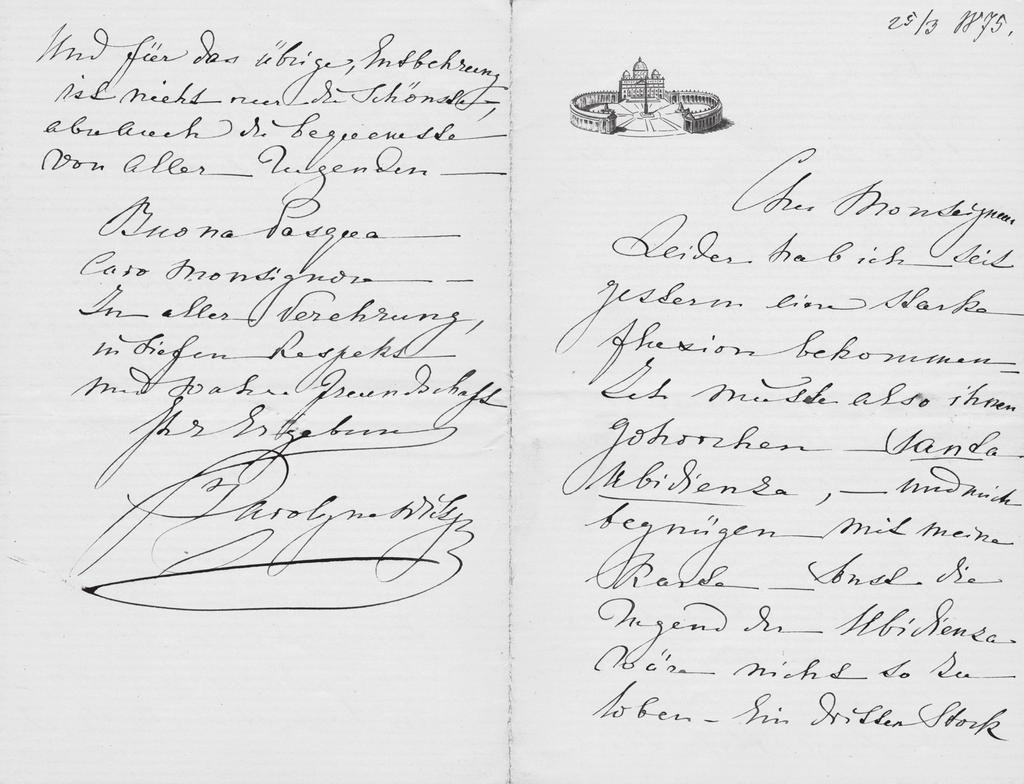 25/3 1875.
Cher Monseigneur
Leider hab ich seit
gestern eine starke
fluxion bekommen –
Ich müsste also ihnen
gohorchen – Santa
Ubidienza, – und mich
begnügen mit meine
Karte – Sonst die
Tugend der Ubidienza
wäre nicht so zu
loben – Ein dritter Stock
Und für das übrige, Entbehrung
ist nicht nur die Schönste –,
aber auch die bequemste
von aller Tugenden –
Buona Pasqua –
Caro Monsignore –
In aller Verehrung,
in tiefen Respekt
und wahre Freundschaft
Ihr Ergebene